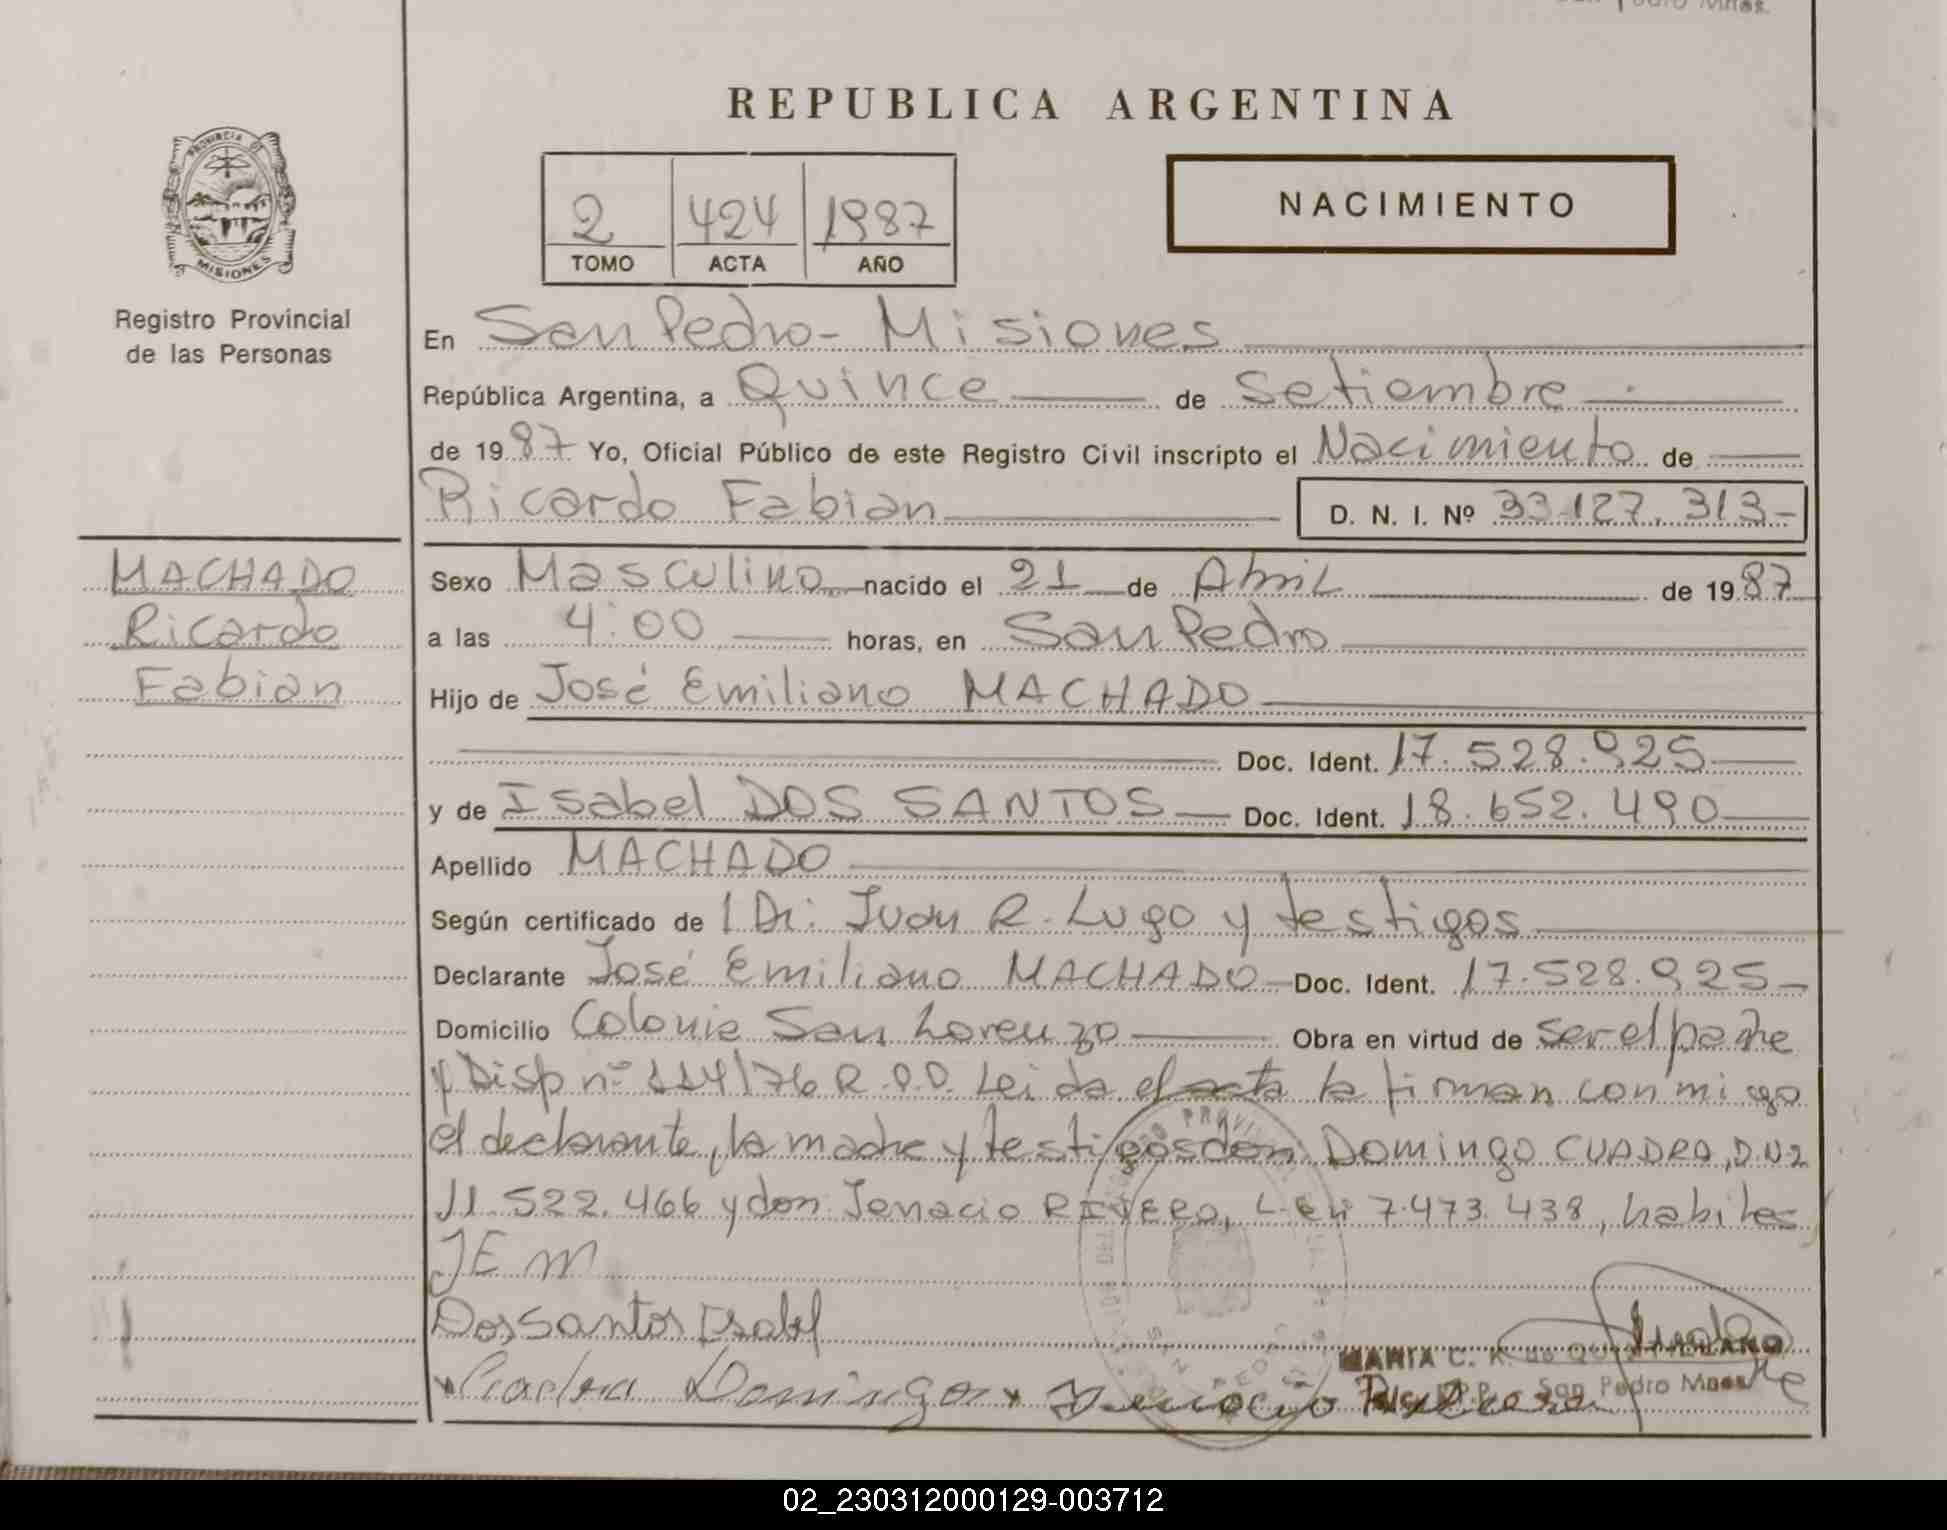 San Pedro Mnes.
REPUBLICA ARGENTINA
PROVINCIA DE
MISIONES
2 424 1987
TOMO ACTA AÑO
NACIMIENTO
Registro Provincial
de las Personas
En San Pedro - Misiones
República Argentina, a Quince de Setiembre
de 1987 Yo, Oficial Público de este Registro Civil inscripto el Nacimiento de
Ricardo Fabian D. N. I. Nº 33.127.313-
MACHADO
Ricardo
Fabian
Sexo Masculino nacido el 21 de Abril de 1987
a las 4:00 horas, en San Pedro
Hijo de José Emiliano MACHADO
Doc. Ident. 17.528.925
y de Isabel DOS SANTOS Doc. Ident. 18.652.490
Apellido MACHADO
Según certificado de Dr: Juan R. Lugo y testigos
Declarante José Emiliano MACHADO Doc. Ident. 17.528.925
Domicilio Colonia San Lorenzo Obra en virtud de ser el padre
y Disp nº 114/76 R.P.P. Leida el acta la firman conmigo
el declarante, la madre y testigos don Domingo CUADRA, D.N.I
11.522.466 y don Ignacio RIVERO, L.E nº 7.473.438, habiles
JEM
Dos Santos Isabel
Cuadra Domingo
MARIA C. K. de
San Pedro Mnes
02_230312000129-003712